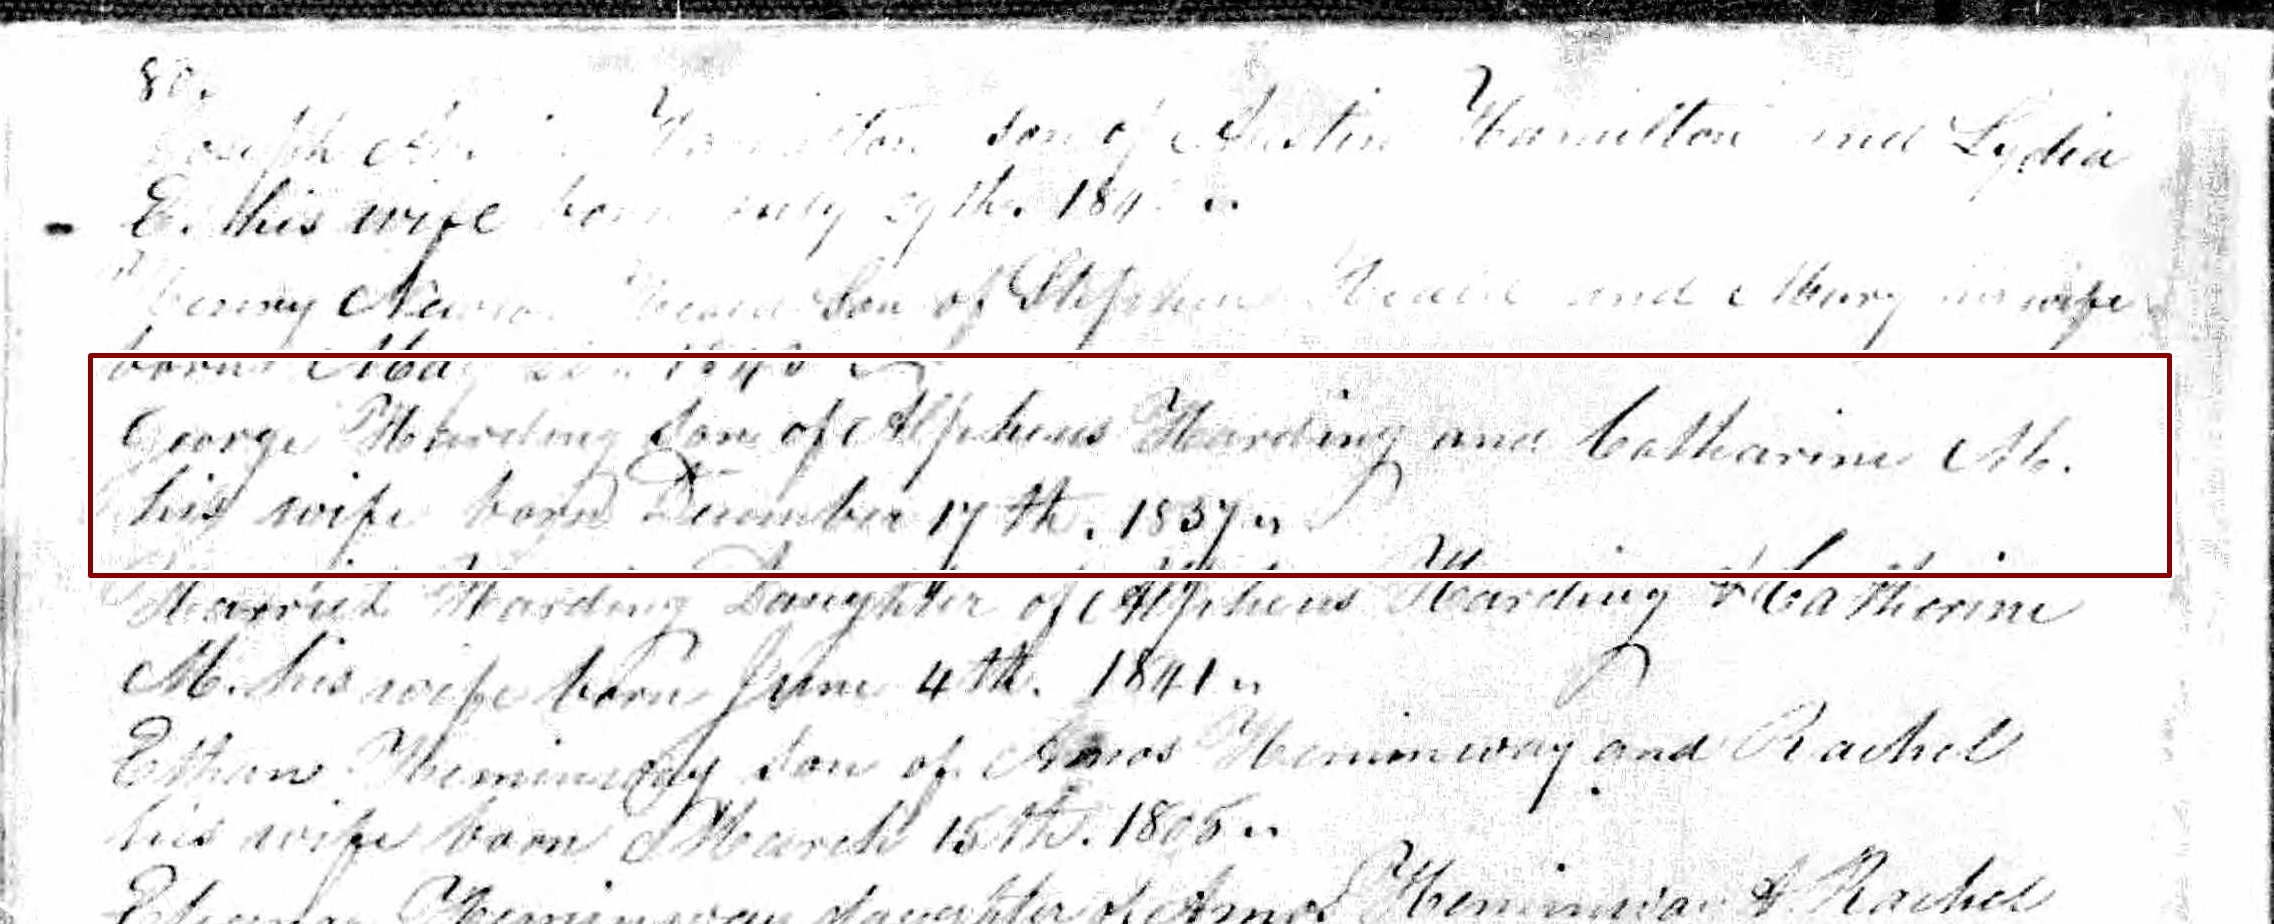 80.
Joseph Hamilton son of Austin Hamilton and Lydia
E. his wife born July 29th. 184
Henry Newton Heald Son of Stephen Heald and Mary his wife
born May 1843
George Harding Son of Alpheus Harding and Catharine M.
his wife born December 17th. 1837 "
Harriet Harding Daughter of Alpheus Harding & Catherine
M. his wife born June 4th. 1841 "
Ethan Heminway Son of Amos Heminway and Rachel
his wife born March 15th. 1805 "
Heminway daughter of Amos Heminway & Rachel